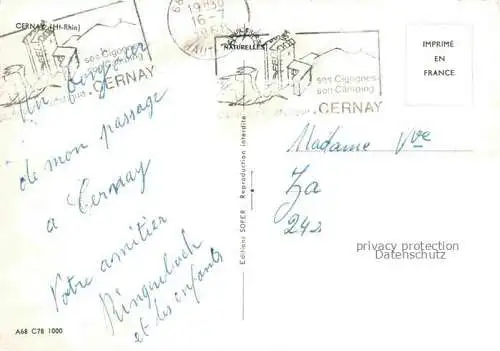 CERNAY (Ht-Rhin)
19H30
16-7
NATURELLES
ses Cigognes
son Camping
CERNAY
ses Cigognes
son Camping
CERNAY
IMPRIMÉ
EN
FRANCE
Un
de mon passage
a Cernay
Votre amitier
Ringenbach
et des enfants
Editions SOFER Reproduction interdite
Madame Vve
Za
242
privacy protection
Datenschutz
A68 C78 1000